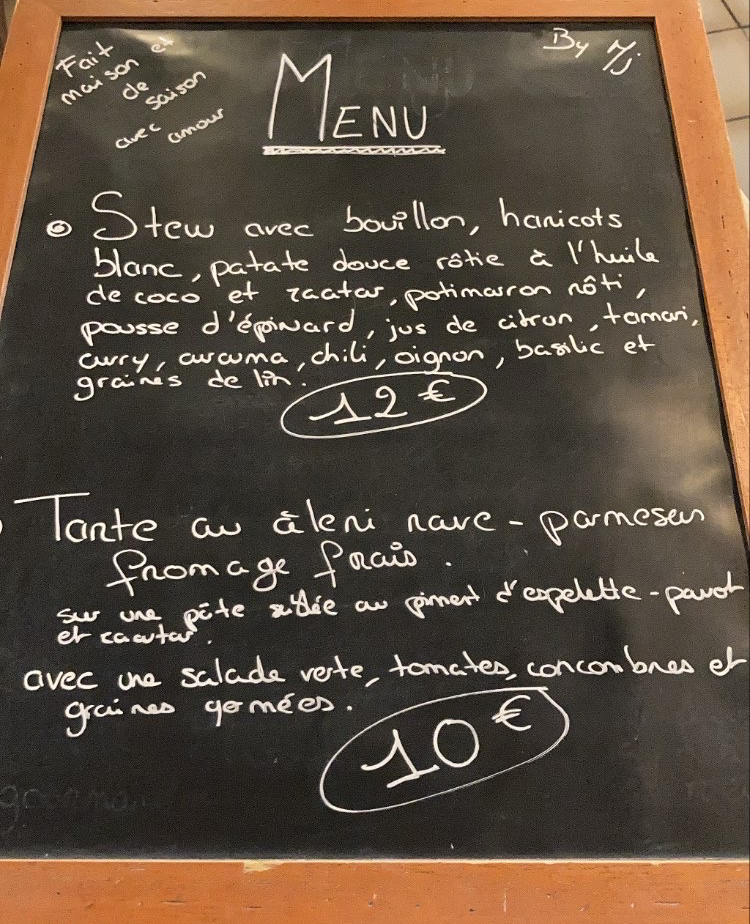 Fait
maison et
de
saison
avec amour
By Mj
MENU
Stew avec bouillon, haricots
blanc, patate douce rôtie à l'huile
de coco et zaatar, potimarron rôti,
pousse d'épinard, jus de citron, tamari,
curry, curcuma, chili, oignon, basilic et
graines de lin.
12 €
Tarte au céleri rave - parmesan
fromage frais.
sur une pâte sablée au piment d'espelette - pavot
et zaatar.
avec une salade verte, tomates, concombres et
graines germées.
10 €